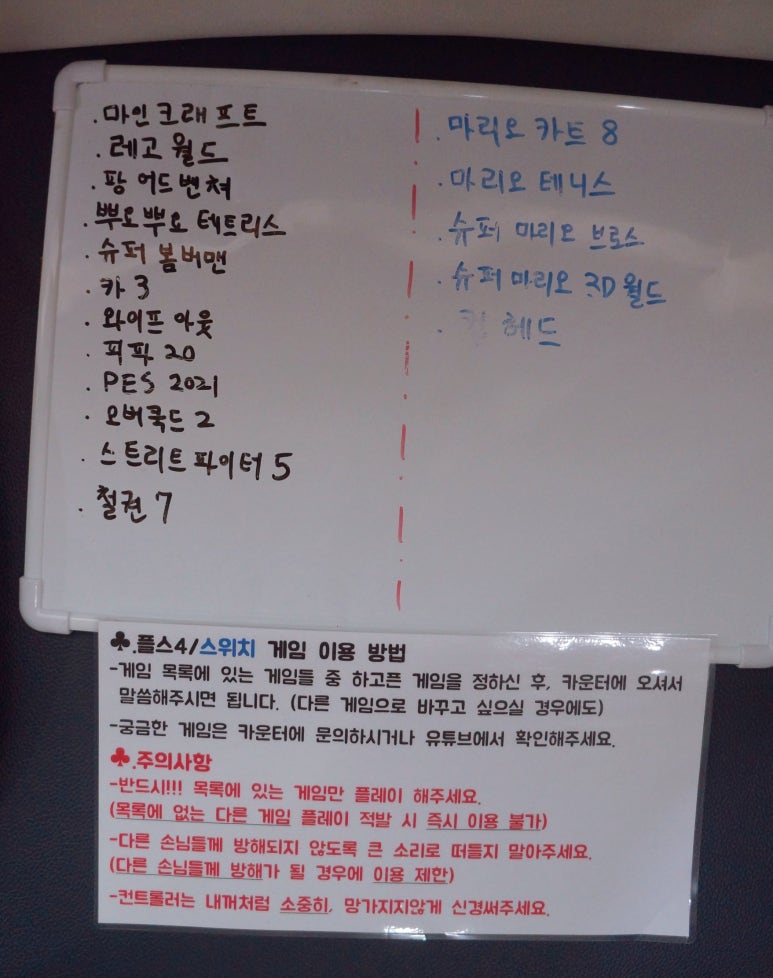 . 마인크래프트
. 레고 월드
. 팡 어드벤쳐
. 뿌요뿌요 테트리스
. 슈퍼 봄버맨
. 카 3
. 와이프 아웃
. 피파 20
. PES 2021
. 오버쿡드 2
. 스트리트 파이터 5
. 철권 7
. 마리오 카트 8
. 마리오 테니스
. 슈퍼 마리오 브로스
. 슈퍼 마리오 3D 월드
. 헤드
♣.플스4/스위치 게임 이용 방법
-게임 목록에 있는 게임들 중 하고픈 게임을 정하신 후, 카운터에 오셔서
말씀해주시면 됩니다. (다른 게임으로 바꾸고 싶으실 경우에도)
-궁금한 게임은 카운터에 문의하시거나 유튜브에서 확인해주세요.
♣.주의사항
-반드시!!! 목록에 있는 게임만 플레이 해주세요.
(목록에 없는 다른 게임 플레이 적발 시 즉시 이용 불가)
-다른 손님들께 방해되지 않도록 큰 소리로 떠들지 말아주세요.
(다른 손님들께 방해가 될 경우에 이용 제한)
-컨트롤러는 내꺼처럼 소중히, 망가지지않게 신경써주세요.